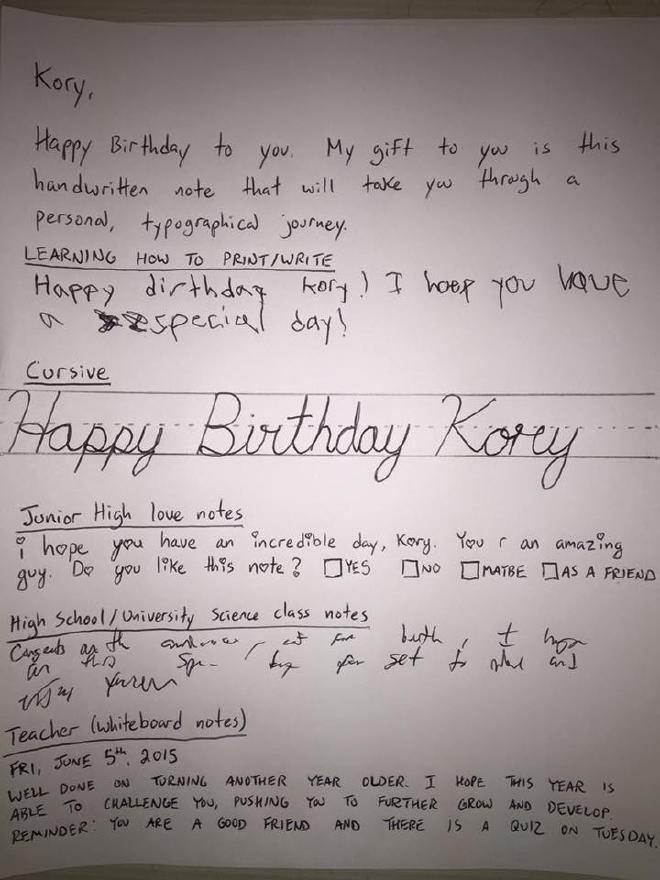 Kory,
Happy Birthday to you. My gift to you is this
handwritten note that will take you through a
personal, typographical journey.
LEARNING HOW TO PRINT/WRITE
Happy dirthday Kory! I hoep you have
a special day!
Cursive
Happy Birthday Korey
Junior High love notes
i hope you have an incredible day, Kory. You r an amazing
guy. Do you like this note? □ YES □ NO □ MAYBE □ AS A FRIEND
High School/University Science class notes
birth, I hope
set to
Teacher (whiteboard notes)
FRI, JUNE 5th, 2015
WELL DONE ON TURNING ANOTHER YEAR OLDER. I HOPE THIS YEAR IS
ABLE TO CHALLENGE YOU, PUSHING YOU TO FURTHER GROW AND DEVELOP.
REMINDER: YOU ARE A GOOD FRIEND AND THERE IS A QUIZ ON TUESDAY.